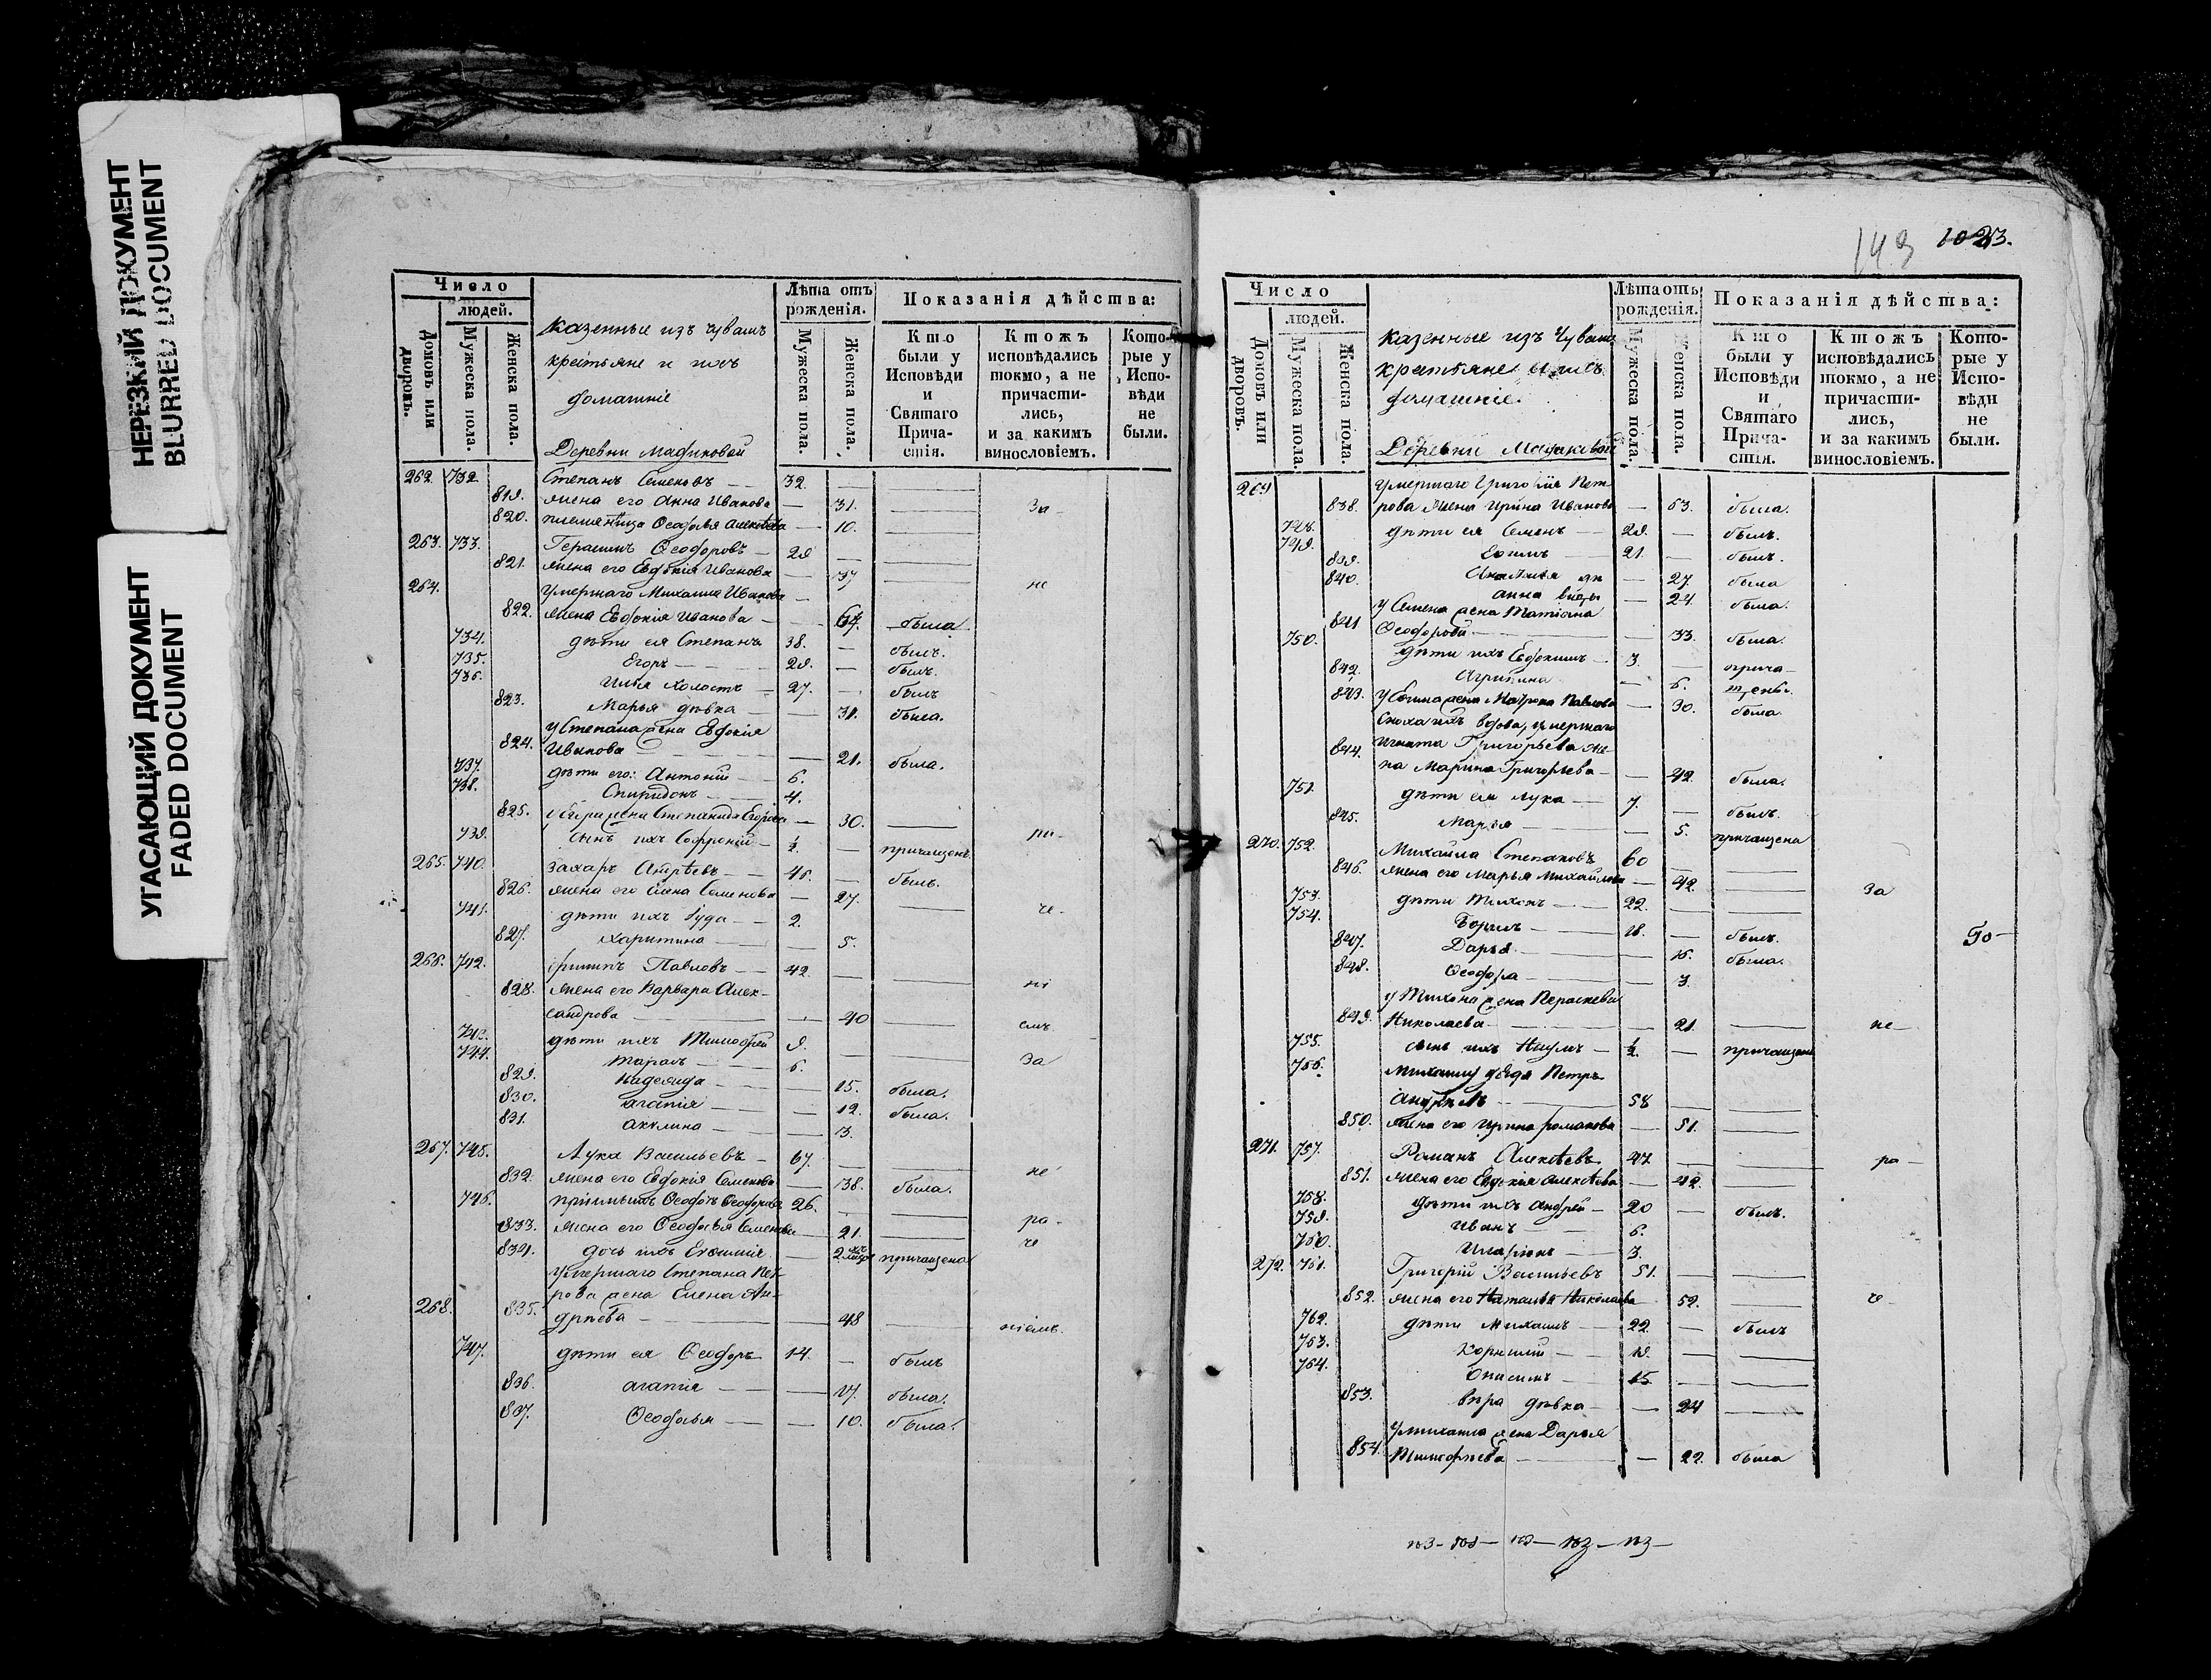 НЕРЕЗКИЙ ДОКУМЕНТ
BLURRED DOCUMENT
УГАСАЮЩИЙ ДОКУМЕНТ
FADED DOCUMENT
Число
людей.
Домовъ или дворовъ.
Мужеска пола.
Женска пола.
казенные изъ чувашъ
крестьяне и ихъ
домашніе
Деревни
Лѣта отъ рожденія.
Мужеска пола.
Женска пола.
Показанія дѣйства:
Кто были у Исповѣди и Святаго Причастія.
Ктожъ исповѣдались токмо, а не причастились, и за какимъ винословіемъ.
Которые у Исповѣди не были.
262. 732. Степанъ Семеновъ 32.
819. жена его Анна Иванова 31. За-
820. племянница Ѳеодосья Алексѣева 10.
263. 733. Герасимъ Ѳеодоровъ 29
821. жена его Евдокія Иванова 37
264. умершаго Михаила Иванова не
822. жена Евдокія Иванова была
734. дѣти ея Степанъ 38. былъ.
735. Егоръ 29. былъ.
736. Илья холостъ 27. былъ
823. Марья дѣвка 31. была.
у Степана жена Евдокія
824. Иванова 21. была.
737. дѣти его: Антоній 6.
738. Спиридонъ 4.
825. у Егора жена Степанида Егорова 30.
739. сынъ ихъ Софроній ½. причащенъ ра-
265. 740. Захаръ 46. былъ.
826. жена его Елена Семенова 27.
741. дѣти ихъ 2. че-
827. Харитина 5.
266. 742. Филипъ Павловъ 42.
828. жена его Варвара Алек- ні
сандрова 40
743. дѣти ихъ Тимофей 9. емъ.
744. Тарасъ 6. За
829. Надежда 15. была.
830. Агапія 12. была.
831. Акулина 3.
267. 745. Лука Васильевъ 67.
832. жена его Евдокія Семенова 38. была. не
746. пріимышъ Ѳеодоръ Ѳеодоровъ 26.
833. жена его Ѳеодосья Семенова 21. ра-
834. дочь ихъ Евфимія 2 причащена че
умершаго Степана Пет-
рова жена Елена Ан-
268. 835. дрѣева 48 ніемъ.
747. дѣти ея Ѳеодоръ 14. былъ
836. Агапія 17. была.
837. Ѳеодосья 10. была.
149 1023.
Число
людей.
Домовъ или дворовъ.
Мужеска пола.
Женска пола.
казенные изъ чуваш
крестьяне и ихъ
домашніе.
Деревни
Лѣта отъ рожденія.
Мужеска пола.
Женска пола.
Показанія дѣйства:
Кто были у Исповѣди и Святаго Причастія.
Ктожъ исповѣдались токмо, а не причастились, и за какимъ винословіемъ.
Которые у Исповѣди не были.
269 умершаго Григорія Пет-
838. рова жена Ирина Иванова 53. была.
748. дѣти ея Семенъ 29. былъ.
749. Ефимъ 21. былъ.
839. 27. была
840. Анна 24. была.
у Семена жена Татіана
841 Ѳеодорова 33. была.
750. дѣти ихъ Евдокимъ 3. прича-
842. Агрипина 6. щены.
843. у Ефима жена Матрона Павлова 30. была.
сноха ихъ вдова, умершаго
Игната Григорьева же-
844. на Марина Григорьева 42. была.
751. дѣти ея Лука 7. былъ.
845. Марья 5. причащена
270. 752. Михайла Степановъ 60
846. жена его Марья Михайлова 42. За
753. дѣти Тихонъ 22.
754. Борисъ 18. былъ. Бо-
847. Дарья 16. была.
848. Ѳеодора 3.
у Тихона жена Пераскева
849. Николаева 21. не
755. сынъ ихъ Наумъ ½. причащенъ
756. Михаилу дядя Петръ
58
850. жена его Ирина Романова 51.
271. 757. Романъ Алексѣевъ 47 ра-
851. жена его Евдокія Алексѣева 42.
758. дѣти ихъ Андрей 20 былъ.
759. Иванъ 6.
760. Иларіонъ 3.
272. 761. Григорій Васильевъ 51.
852. жена его Наталья Николаева 52. че-
762. дѣти Михаилъ 22 былъ
763. Корнилій 19.
764. Онисимъ 15
853. вѣра дѣвка 24
у михаила жена Дарья
854. Тимофѣева 22. была